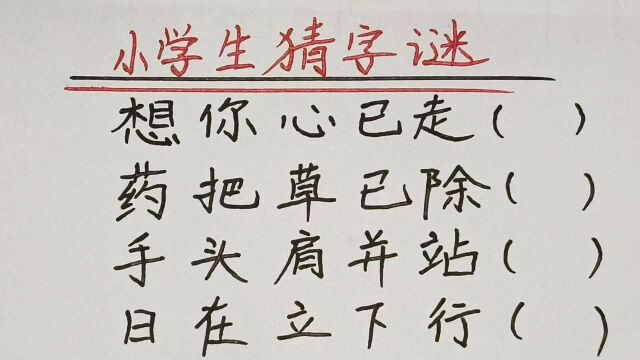 小学生猜字谜
想你心已走( )
药把草已除( )
手头肩并站( )
日在立下行( )